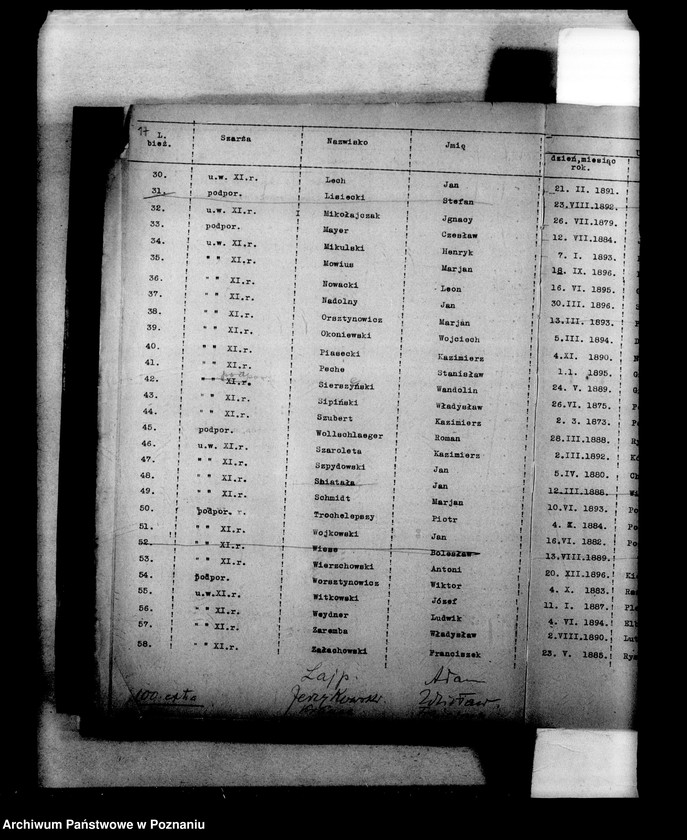 17
L. bież. Szarża Nazwisko Jmię dzień,miesiąc rok.
30. u.w. XI.r. Lech Jan 21. II. 1891.
31. podpor. Lisiecki Stefan 23.VIII.1892.
32. u.w. XI.r. Mikołajczak Jgnacy 26. VII.1879.
33. podpor. Mayer Czesław 12. VII.1884.
34. u.w. XI.r. Mikulski Henryk 7. I. 1893.
35. " " XI.r. Mowius Marjan 18. IX. 1896.
36. " " XI.r. Nowacki Leon 16. VI. 1895.
37. " " XI.r. Nadolny Jan 30.III. 1896.
38. " " XI.r. Orsztynowicz Marjan 13.III. 1893.
39. " " XI.r. Okoniewski Wojciech 5.III. 1894.
40. " " XI.r. Piasecki Kazimierz 4.XI. 1890.
41. " " XI.r. Peche Stanisław 1.1. 1895.
42. " " XI.r. Sierszyński Wandolin 24. V. 1889.
43. " " XI.r. Sipiński Władysław 26.VI. 1875.
44. " " XI.r. Szubert Kazimierz 2. 3. 1873.
45. podpor. Wollschlaeger Roman 28.III.1888.
46. u.w. XI.r. Szaroleta Kazimierz 2.III.1892.
47. " " XI.r. Szpydowski Jan 5.IV. 1880.
48. " " XI.r. Shiatała Jan 12.III.1888.
49. " " XI.r. Schmidt Marjan 10.VI. 1893.
50. podpor. Trochelepszy Piotr 4. X. 1884.
51. " " XI.r. Wojkowski Jan 16.VI. 1882.
52. " " XI.r. Wiese Bolesław 13.VIII.1889.
53. " " XI.r. Wierzchowski Antoni 20. XII.1896.
54. podpor. Worsztynowicz Wiktor 4. X. 1883.
55. u.w.XI.r. Witkowski Józef 11. I. 1887.
56. " " XI.r. Weydner Ludwik 4. VI. 1894.
57. " " XI.r. Zaremba Władysław 2.VIII.1890.
58. " " XI.r. Załachowski Franciszek 23. V. 1885.
Lajp. Adam
Jerzykowski Zdzisław
Archiwum Państwowe w Poznaniu